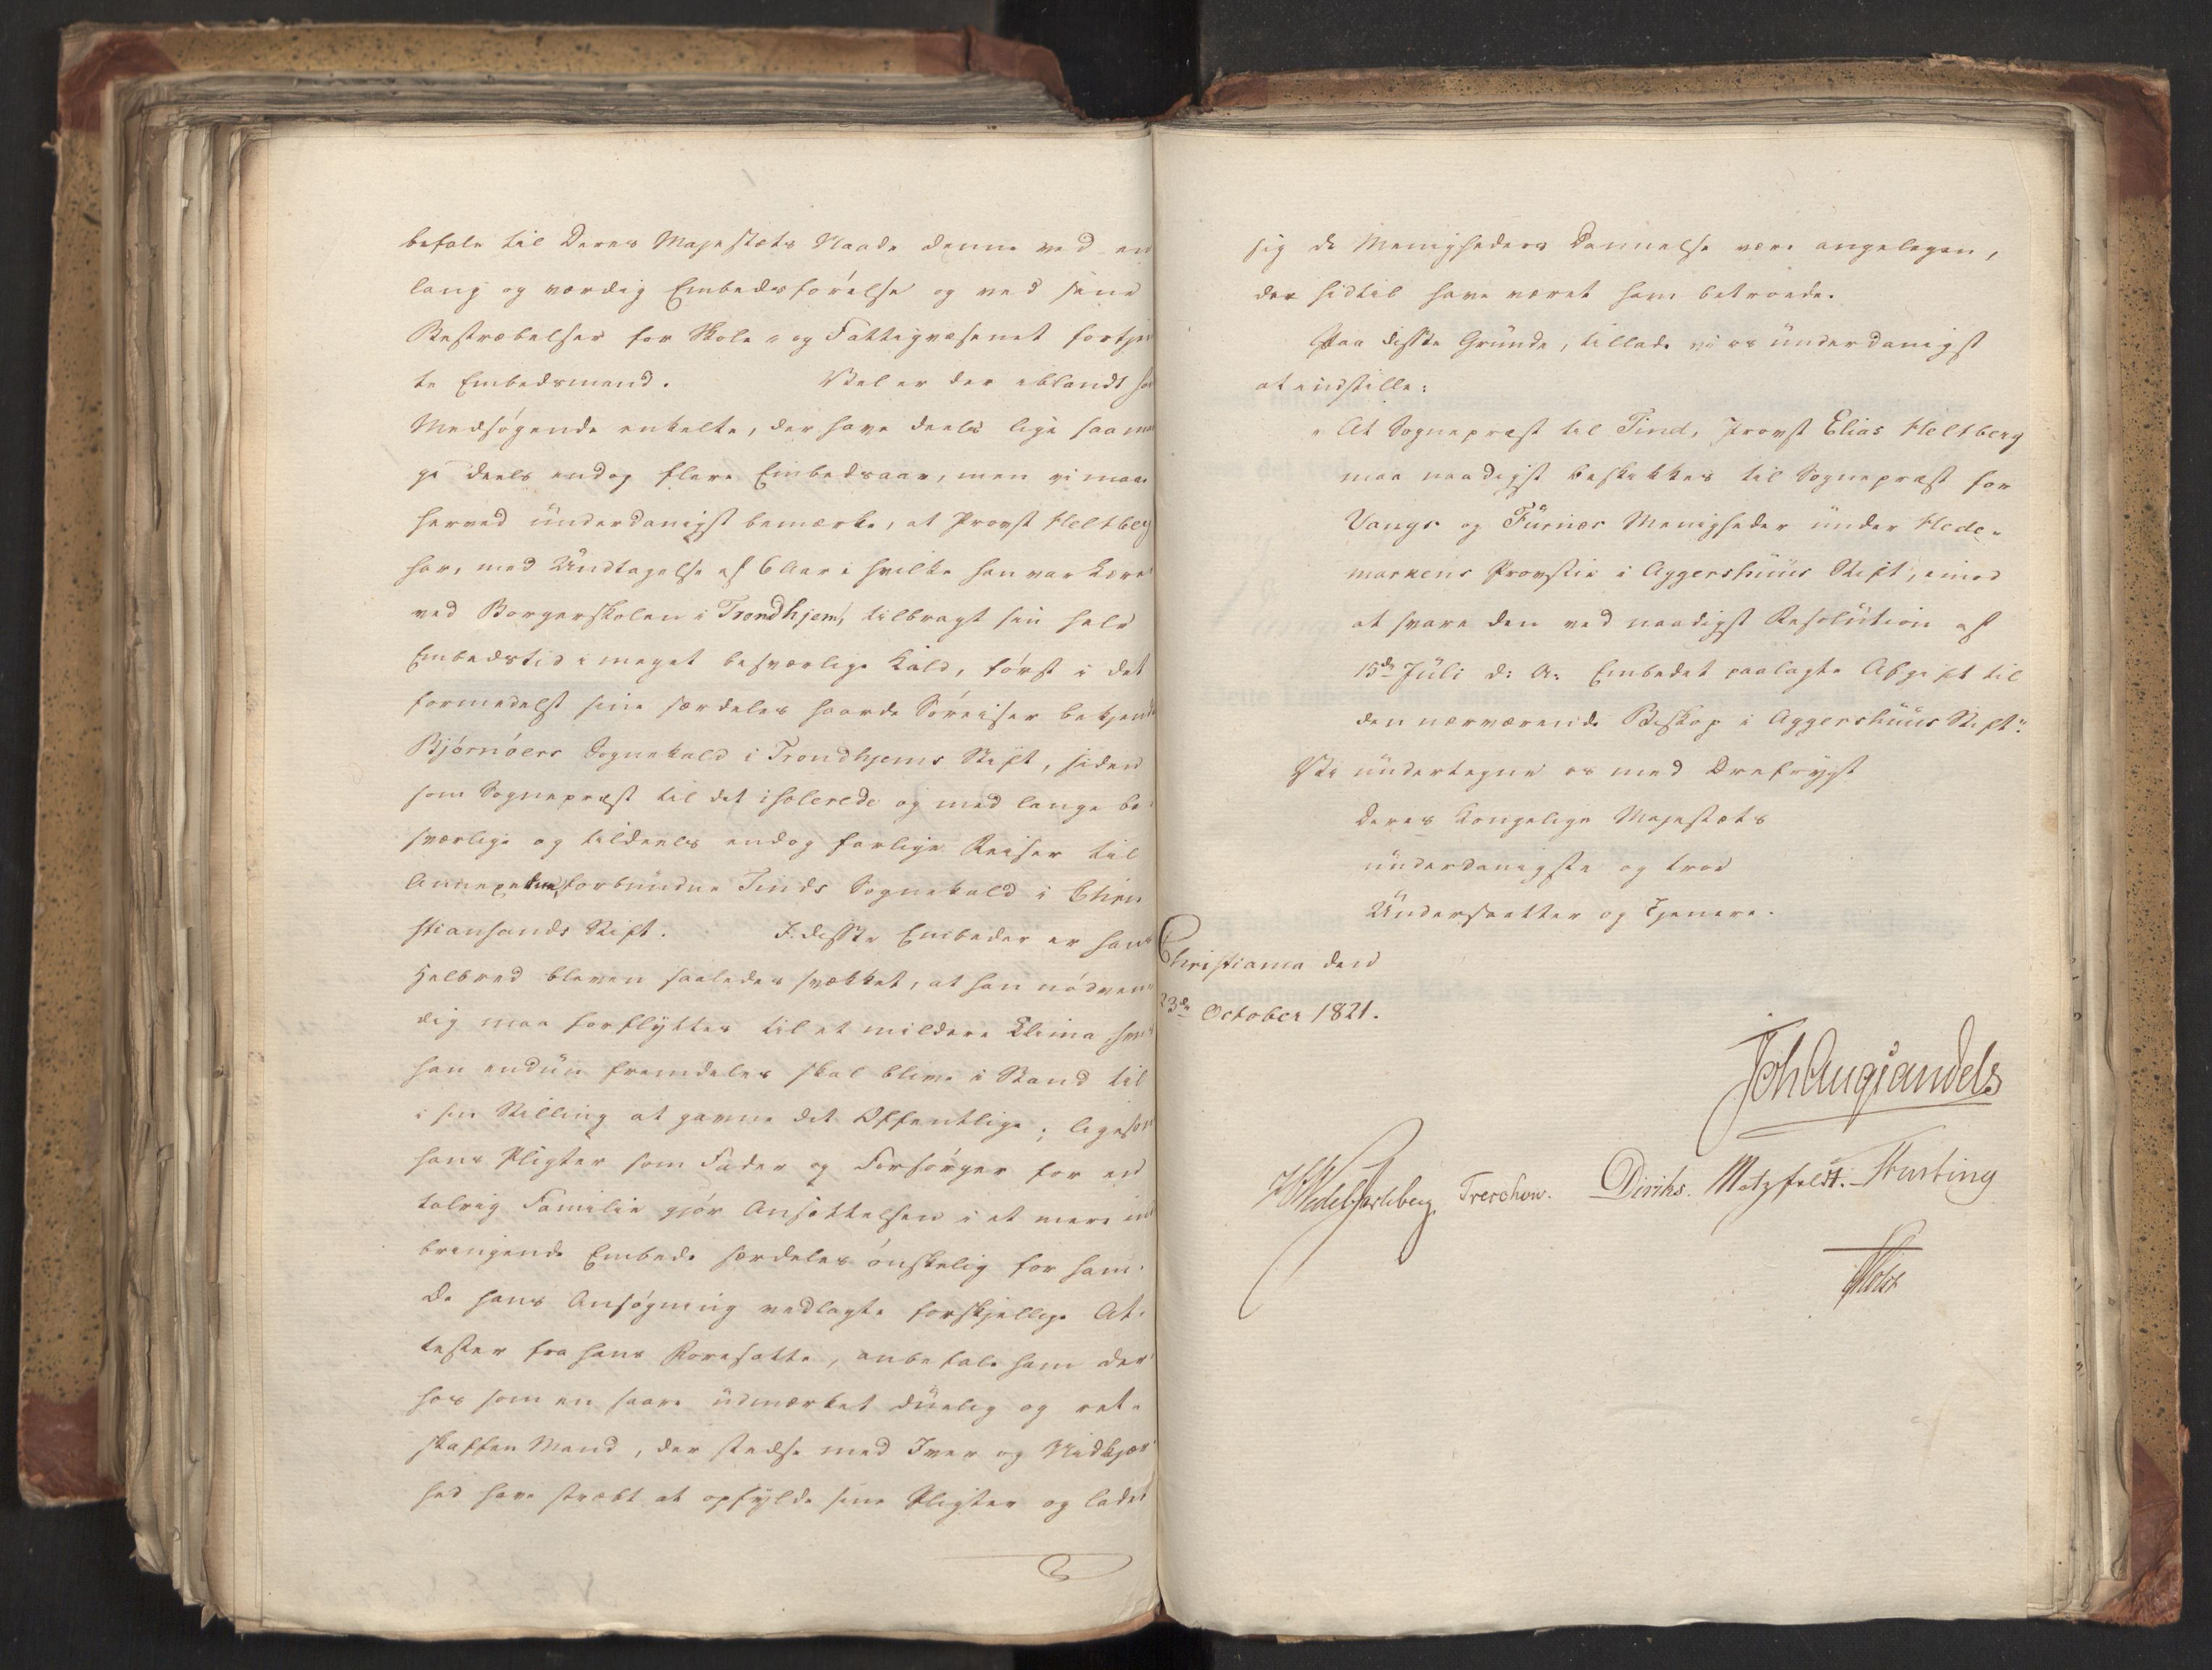 befale til Deres Majestæts Naade denne ved en
lang og værdig Embedsførelse og ved sine
Bestræbelser for Skole- og Fattigvæsenet fortjen
te Embedsmand. Vel er der iblandt
Medsøgende enkelte, der have deels lige saa man
ge deels endog flere Embedsaar, men vi maae
herved underdanigst bemærke, at Provst Heltberg
har, med Undtagelse af 6 Aar i hvilke han var Lærer
ved Borgerskolen i Trondhjem, tilbragt sin hele
Embedstid i meget besværlige Kald, først i det
formedelst sine særdeles haarde Søreiser bekjendte
Bjørnøers Sognekald i Trondhjems Stift, siden
som Sognepræst til det isolerede og med lange be-
sværlige og tildeels endog farlige Reiser til
Annexerne forbundne Tinds Sognekald i Chri
stiansands Stift. I disse Embeder er hans
Helbred bleven saaledes svækket, at han nødven
dig maa forflyttes til et mildere Klima, hvis
han endnu fremdeles skal blive i Stand til
i sin Stilling at gavne det Offentlige; ligesom
hans Pligter som Fader og Forsørger for en
talrig Familie gjør Ansættelsen i et mere ind
bringende Embede særdeles ønskelig for ham.
De hans Ansøgning vedlagte forskjellige At-
tester fra hans Foresatte, anbefale ham der
hos som en saare udmærket duelig og ret-
skaffen Mand, der stedse med Iver og Nidkjær
hed have stræbt at opfylde sine Pligter og ladet
sig de Menigheders Dannelse være angelegen,
der hidtil have været ham betroede.
Paa disse Grunde, tillade vi os underdanigst
at indstille:
"At Sognepræst til Tind, Provst Elias Heltberg
maa naadigst beskikkes til Sognepræst for
Vangs og Furnæs Menigheder under Hede-
markens Provstie i Aggershuus Stift, imod
at svare den ved naadigst Resolution af
15de Juli d: A: Embedet paalagte Afgift til
den nærværende Biskop i Aggershuus Stift".
Vi undertegne os med Ærefrygt
Deres Kongelige Majestæts
underdanigste og troe
Undersaatter og Tjenere.
Christiania den
23de October 1821.
Joh Aug Sandels
HWedel Jarlsberg Treschow. Diriks. Motzfeldt. Hursting
Holst